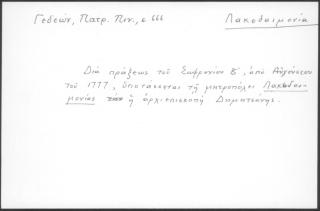 Γεδεών, Πατρ. Πιν., σ 666
Λακεδαιμονία
Διὰ πράξεως τοῦ Σωφρονίου Β΄, ἀπὸ Αὐγούστου
τοῦ 1777, ὑποτάσσεται τῇ μητροπόλει Λακεδαι-
μονίας ἡ ἀρχιεπισκοπὴ Δημητσάνης.